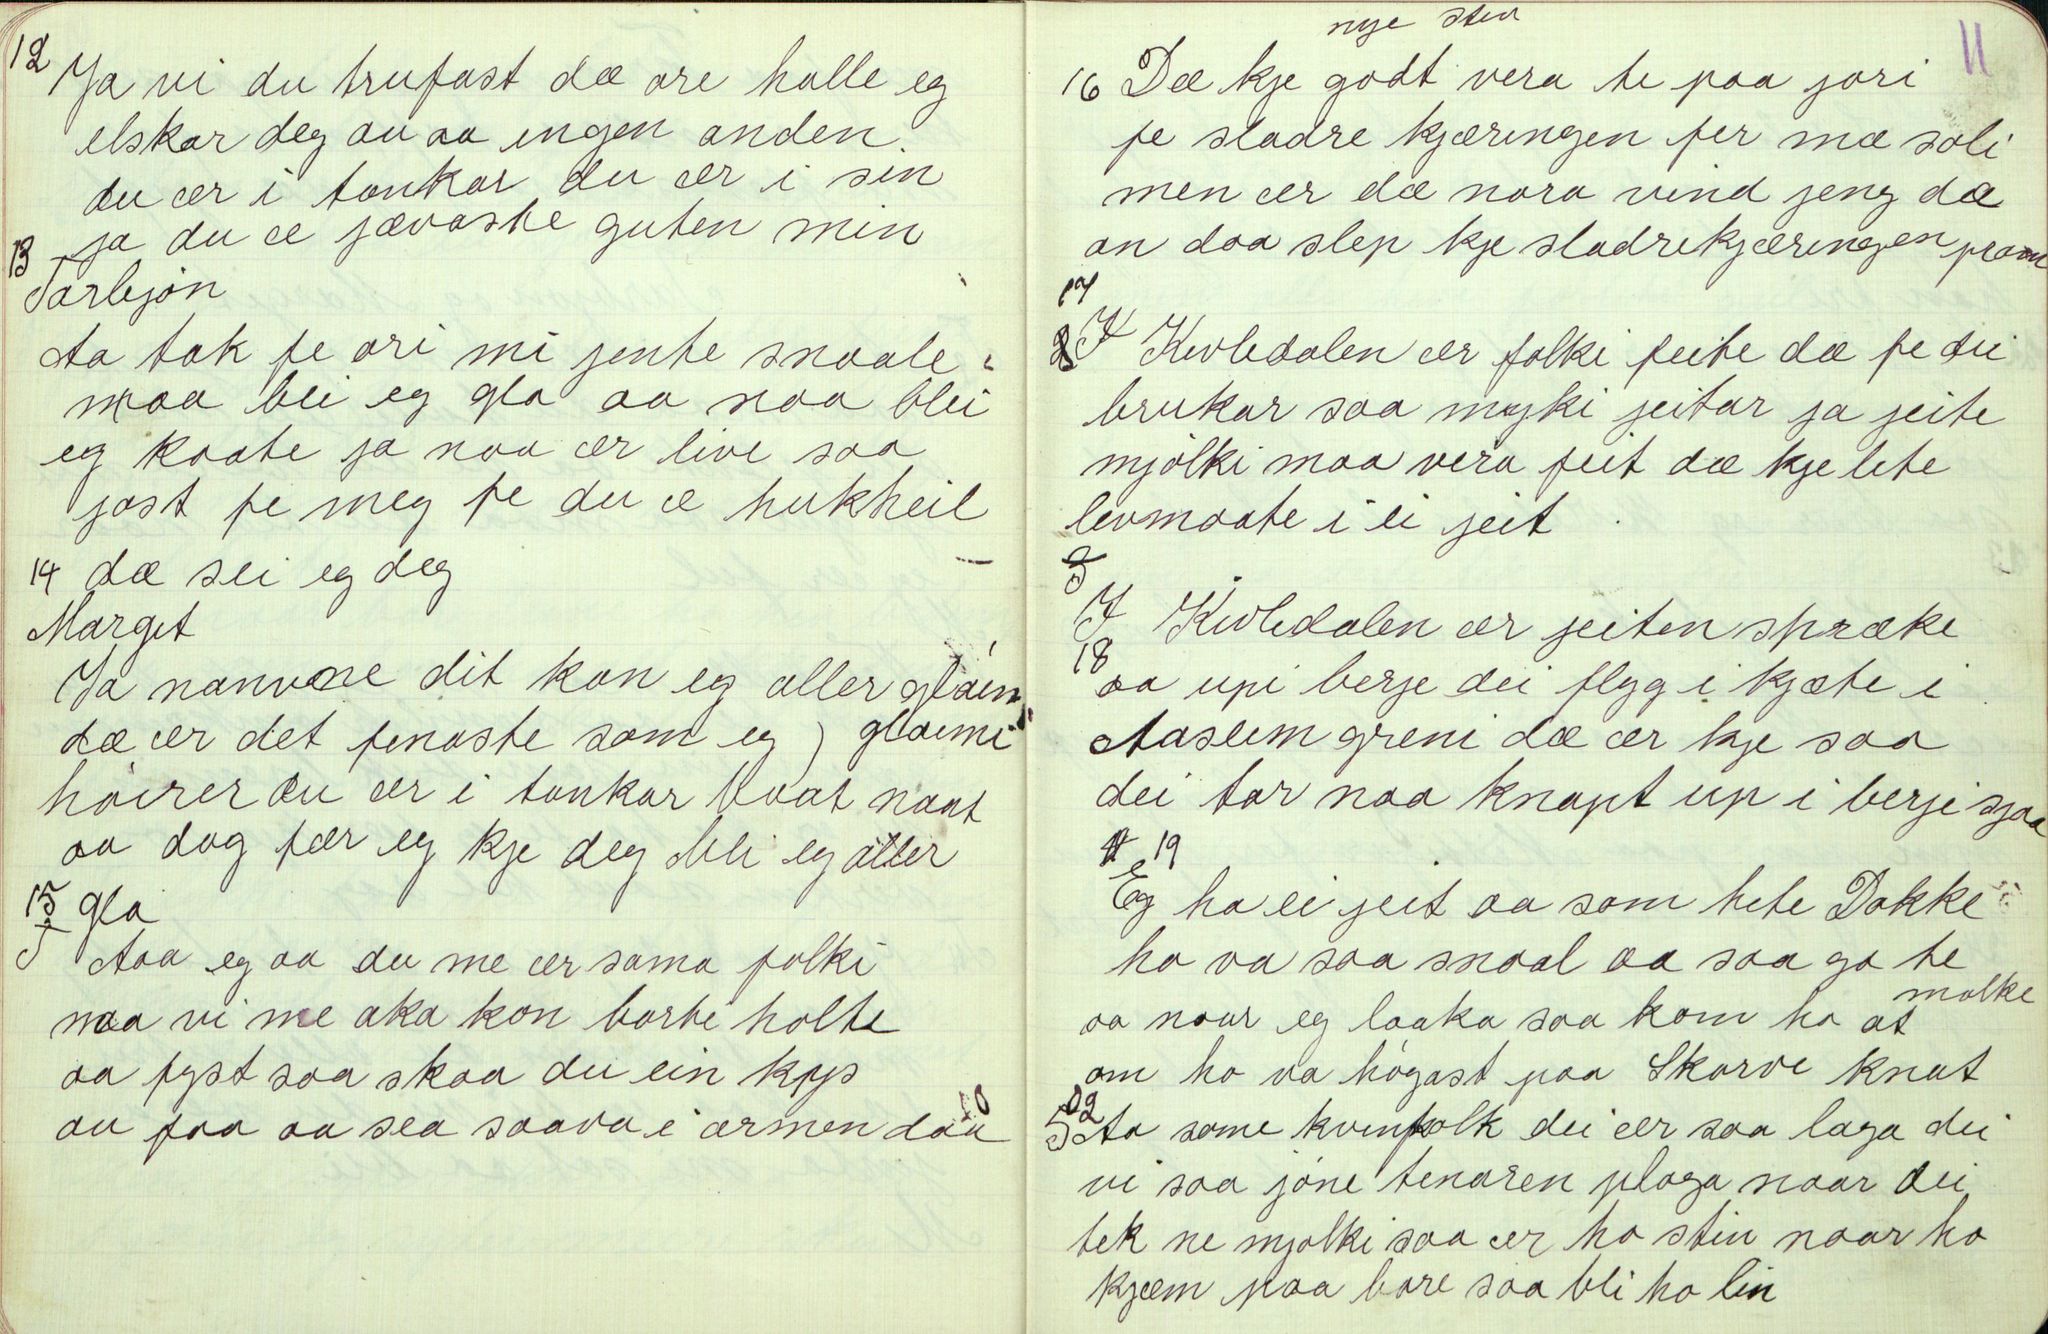 12
Ja vi du trufast dæ ore halle eg
elskar deg au aa ingen anden
du ær i tankar du ær i sin
ja du æ jævaste guten min
13
Tarbjøn
Aa tak fe ori mi jente snaale
naa blei eg gla aa naa blei
eg kaate ja naa ær live saa
jast fe meg fe du æ hukheil
14 dæ sei eg deg
Marget
Ja nanvne dit kan eg aller gløim
dæ ær det fenaste som eg ) gløimi
høirer du ær i tankar baat naat
aa dag fær eg kje deg bli eg aller
15 gla
T Aaa eg aa du me ær sama folki
naa vi me aka kon borte holte
aa fyst saa skaa du ein kys
au faa aa sea saava i armen daa
11
nye stev
16 Dæ kje godt vera te paa jori
fe sladre kjæringen fer mæ soli
men ær dæ nora vind jeng dæ
an daa slep kje sladrekjæringen fram
17
I Kivledalen ær folki feite dæ fe dei
brukar saa myki jeitar ja jeite
mjølki maa vera feit dæ kje lite
levmaate i ei jeit
3
I Kivledalen ær jeiten spræke
18
aa upi berje dei flyg i kjæte i
Aasleim greni dæ ær kje saa
dei tar naa knapt up i berji sjaa
4 19
Eg ha ei jeit aa som hete Dokke
ho va saa snaal aa saa go te
molke
aa naar eg laaka saa kom ho at
om ho va høgast paa Skorve knut
20
5 Aa some kvinfolk dei ær saa laga dei
vi saa jóne tenaren plaga naar dei
tek ne mjølki saa ær ho stin naar ho
kjæm paa bore saa bli ho lin